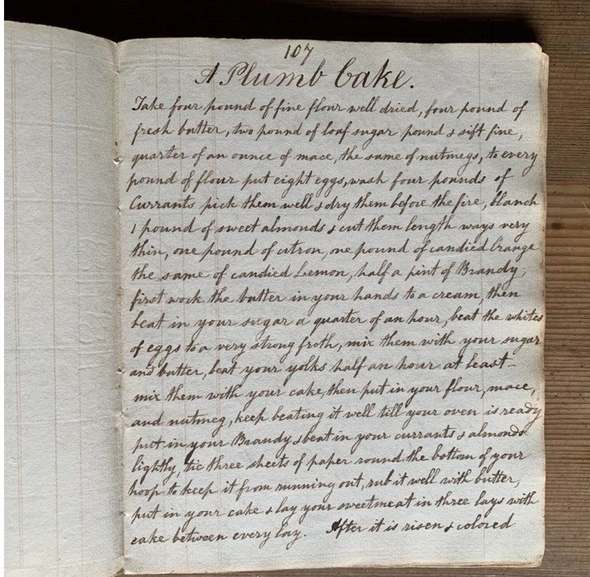 107
A Plumb Cake.
Take four pound of fine flour well dried, four pound of
fresh butter, two pound of loaf sugar pound & sift fine,
quarter of an ounce of mace, the same of nutmegs, to every
pound of flour put eight eggs, wash four pounds of
Currants pick them well & dry them before the fire, blanch
1 pound of sweet almonds & cut them length ways very
thin, one pound of citron, one pound of candied Orange
the same of candied Lemon, half a pint of Brandy,
first work the butter in your hands to a cream, then
beat in your sugar a quarter of an hour, beat the whites
of eggs to a very strong froth, mix them with your sugar
and butter, beat your yolks half an hour at least -
mix them with your cake, then put in your flour, mace,
and nutmeg, keep beating it well till your oven is ready
put in your Brandy & beat in your currants & almonds
lightly, tie three sheets of paper round the bottom of your
hoop to keep it from running out, rub it well with butter,
put in your cake & lay your sweetmeat in three lays with
cake between every lay. After it is risen & colored